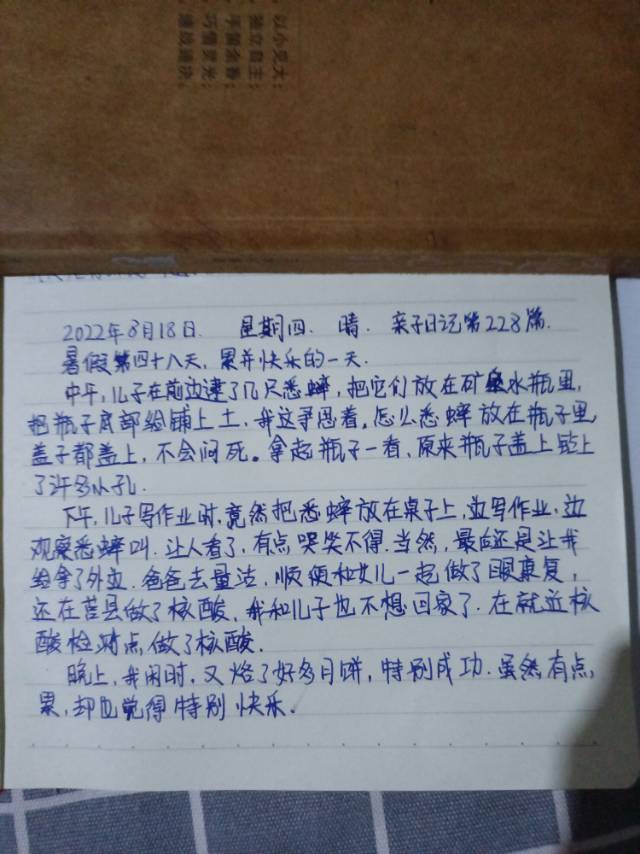 以小见大：
独立自主：
手留余香：
巧借灵光：
速战速决。
2022年8月18日. 星期四. 晴. 亲子日记第228篇.
暑假第四十八天，累并快乐的一天.
中午，儿子在前边逮了几只悉蟀，把它们放在矿泉水瓶里，
把瓶子底部给铺上土，我这寻思着。怎么悉蟀放在瓶子里
盖子都盖上，不会闷死。拿起瓶子一看，原来瓶子盖上钻上
了许多小孔.
下午，儿子写作业时，竟然把悉蟀放在桌子上，边写作业，边
观察悉蟀叫.让人看了，有点哭笑不得.当然，最后还是让我
给拿了外边.爸爸去量活，顺便和女儿一起做了眼康复，
还在莒县做了核酸，我和儿子也不想回家了.在就近核
酸检测点，做了核酸.
晚上，我闲时，又烙了好多月饼，特别成功.虽然有点
累，却也觉得特别快乐.